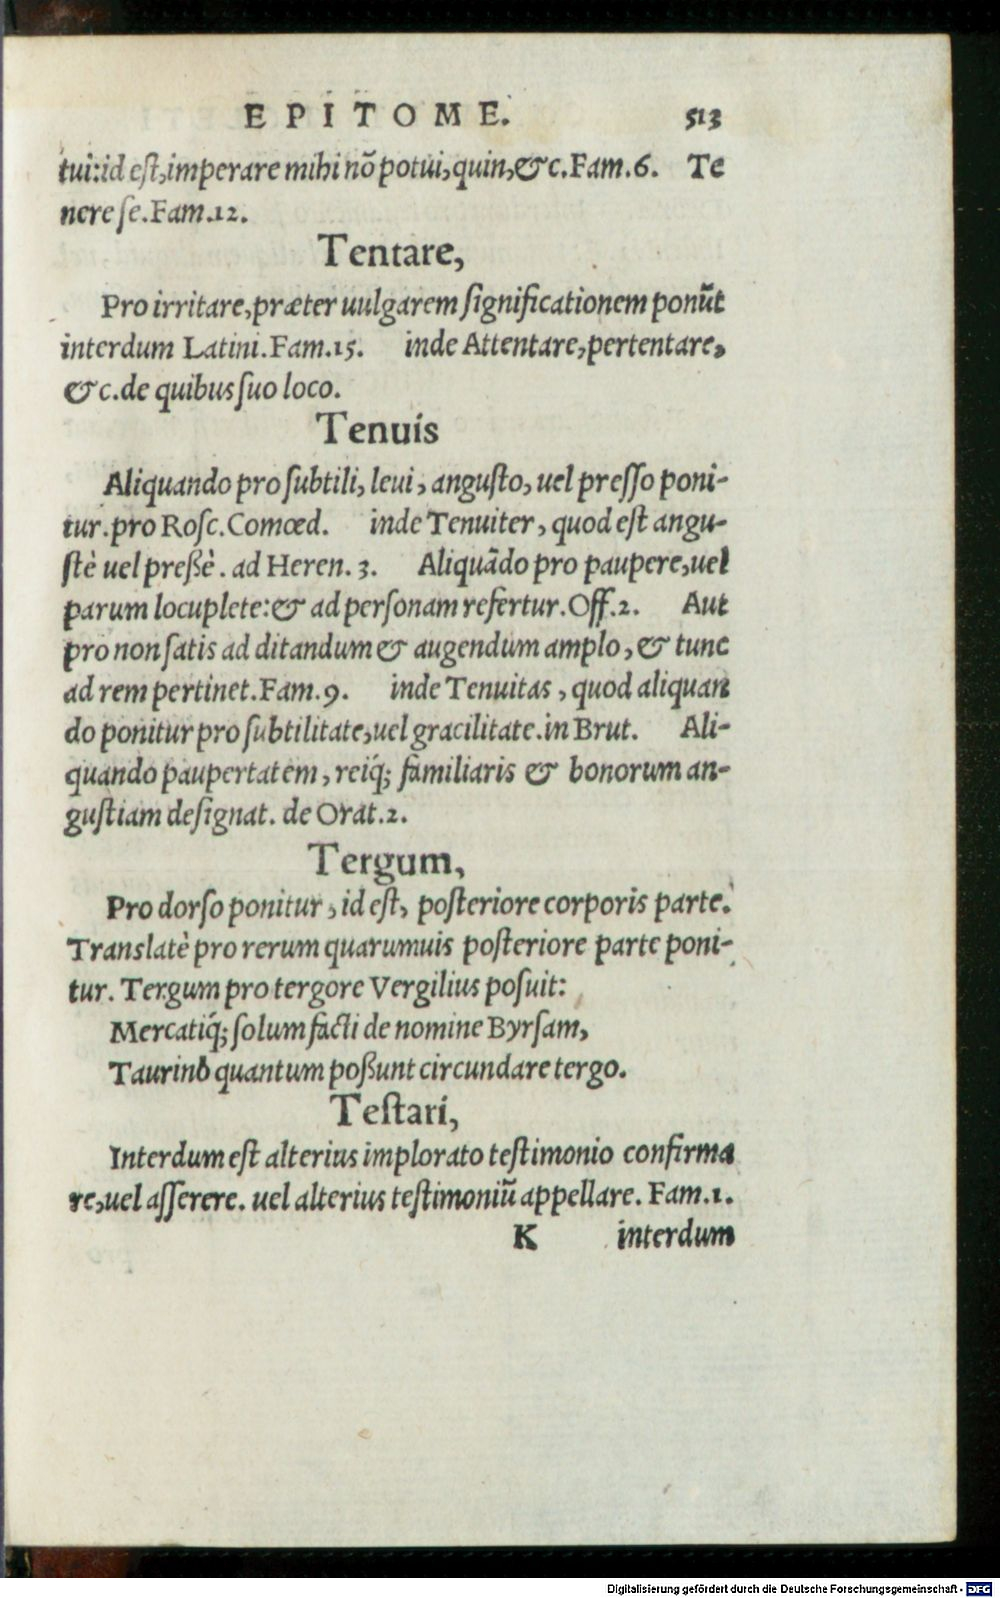 EPITOME. 513
tui:id eſt,imperare mihi nõ potui,quin,&c.Fam.6. Te
nere ſe.Fam.12.
Tentare,
Pro irritare,præter uulgarem ſignificationem ponũt
interdum Latini.Fam.15. inde Attentare,pertentare,
&c.de quibus ſuo loco.
Tenuis
Aliquando pro ſubtili, leui, anguſto, uel preſſo poni-
tur.pro Roſc.Comœd. inde Tenuiter, quod eſt angu-
ſtè uel preßè. ad Heren. 3. Aliquãdo pro paupere,uel
parum locuplete:& ad perſonam refertur.Off.2. Aut
pro non ſatis ad ditandum & augendum amplo, & tunc
ad rem pertinet.Fam.9. inde Tenuitas, quod aliquan
do ponitur pro ſubtilitate,uel gracilitate.in Brut. Ali-
quando paupertatem, reiq́; familiaris & bonorum an-
guſtiam deſignat. de Orat.2.
Tergum,
Pro dorſo ponitur, id eſt, poſteriore corporis parte.
Translatè pro rerum quarumuis poſteriore parte poni-
tur. Tergum pro tergore Vergilius poſuit:
Mercatiq́; ſolum facti de nomine Byrſam,
Taurino quantum poßunt circundare tergo.
Teſtari,
Interdum eſt alterius implorato teſtimonio confirma
re,uel aſſerere. uel alterius teſtimoniũ appellare. Fam.1.
K interdum
Digitalisierung gefördert durch die Deutsche Forschungsgemeinschaft - DFG